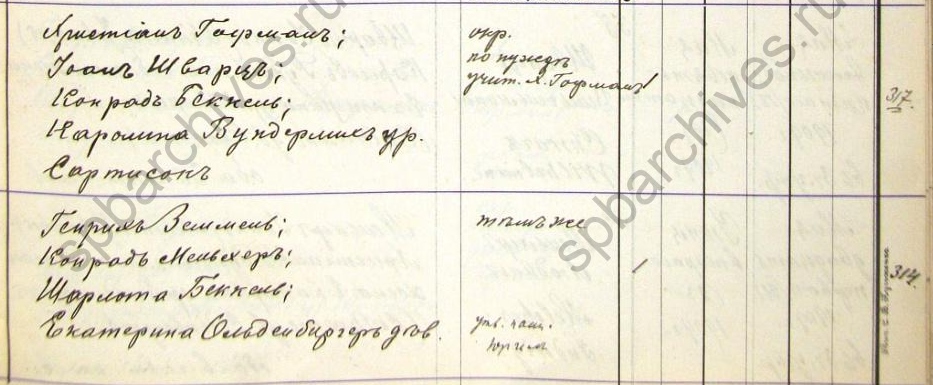 Христіанъ Гофманъ;
Іоанъ Шварцъ;
Конрадъ Беккель;
Каролина Вундермихъ ур.
Сартисонъ
окр.
по нуждѣ
учит. Х. Гофманъ
317.
Генрихъ Земмель;
Конрадъ Мельхеръ;
Шарлота Беккель;
Екатерина Ольденбургеръ дѣв.
тѣмъ же
утв. паст.
314.
spbarchives.ru
spbarchives.ru